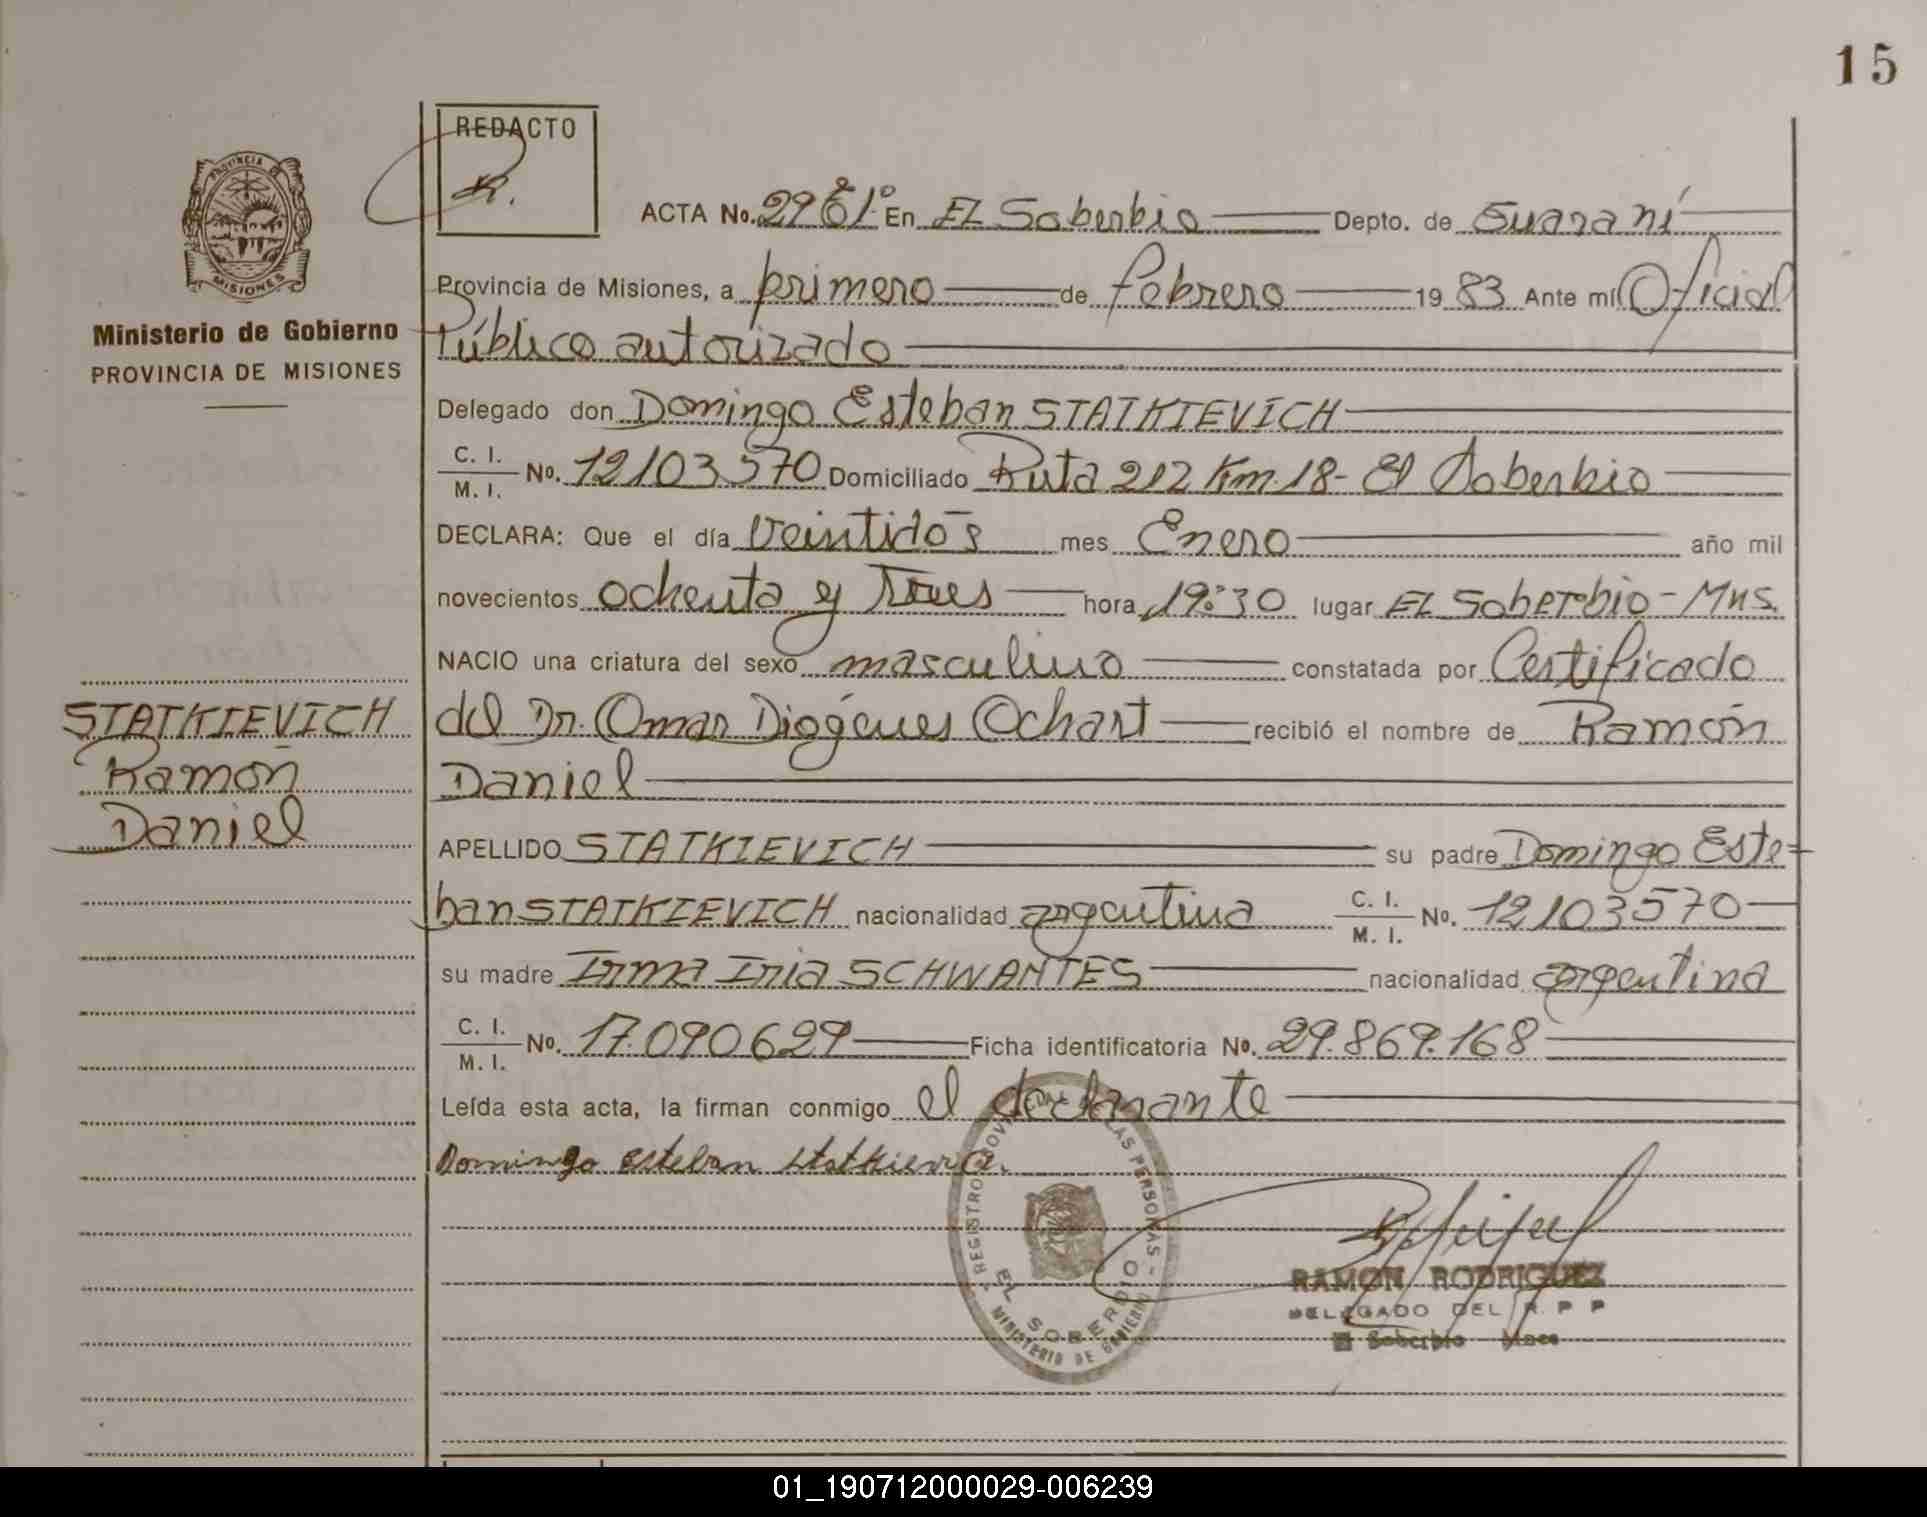 15
REDACTO
R.
PROVINCIA DE
MISIONES
Ministerio de Gobierno
PROVINCIA DE MISIONES
ACTA No. 29 En EL Soberbio Depto. de Guaraní
Provincia de Misiones, a primero de febrero 19 83 Ante mí Oficial
Público autorizado
Delegado don Domingo Esteban STATKIEVICH
C. I.
M. I. No. 12103570 Domiciliado Ruta 212 Km. 18 - El Soberbio
DECLARA: Que el día Veintidós mes Enero año mil
novecientos ochenta y Tres hora 19:30 lugar EL Soberbio - Mns.
NACIO una criatura del sexo masculino constatada por Certificado
del Dr. Omar Diógenes Ochart recibió el nombre de Ramón
Daniel
STATKIEVICH
Ramón
Daniel
APELLIDO STATKIEVICH su padre Domingo Este-
ban STATKIEVICH nacionalidad argentina C. I.
M. I. No. 12103570
su madre Irma Iria SCHWANTES nacionalidad argentina
C. I.
M. I. No. 17.090629 Ficha identificatoria No. 29.869.168
Leída esta acta, la firman conmigo el declarante
Domingo esteban statkievich
REGISTRO PROVINCIAL DE LAS PERSONAS -
EL SOBERBIO
MINISTERIO DE GOBIERNO
RAMON RODRIGUEZ
DELEGADO DEL R. P P
El Soberbio Mnes
01_190712000029-006239